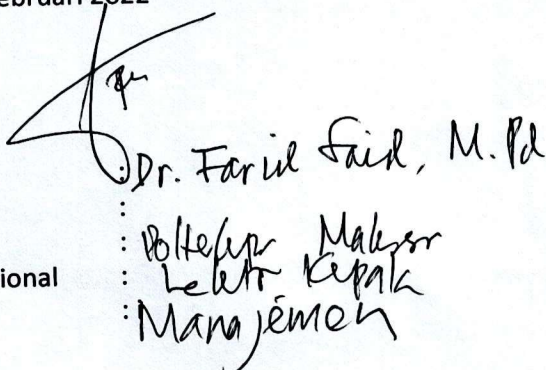 2022
: Dr. Farid Said, M.Pd
:
: Poltekpar Makassar
ional : Lektor Kepala
: Manajemen